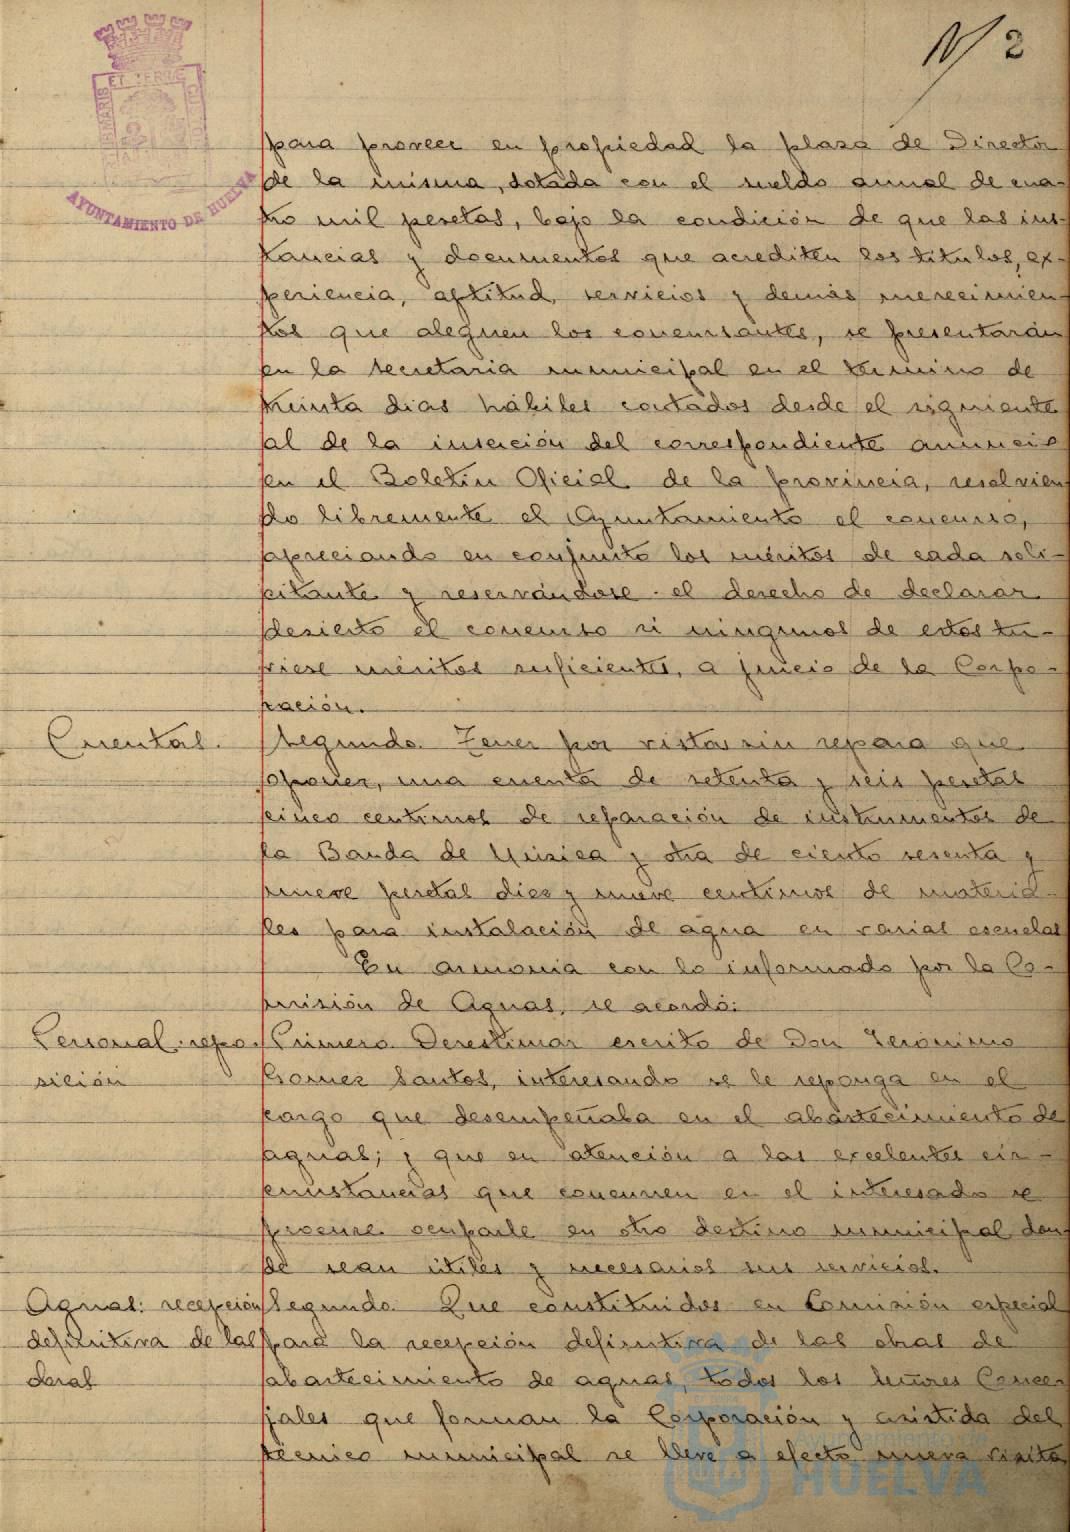 2
PORTUS MARIS ET TERRE CUSTODIA
AYUNTAMIENTO DE HUELVA
para proveer en propiedad la plaza de Director
de la misma, dotada con el sueldo anual de cua-
tro mil pesetas, bajo la condición de que las ins-
tancias y documentos que acrediten los titulos, ex-
periencia, aptitud, servicios y demás merecimien-
tos que aleguen los concursantes, se presentarán
en la Secretaria municipal en el termino de
treinta dias hábiles contados desde el siguiente
al de la inserción del correspondiente anuncio
en el Boletin Oficial de la provincia, resolvien-
do libremente el Ayuntamiento el concurso,
apreciando en conjunto los méritos de cada soli-
citante y reservándose el derecho de declarar
desierto el concurso si ningunos de estos tu-
viese méritos suficientes, a juicio de la Corpo-
ración.
Cuentas.
Segundo. Tener por vistas sin reparo que
oponer, una cuenta de setenta y seis pesetas
cinco centimos de reparación de instrumentos de
la Banda de Música y otra de ciento sesenta y
nueve pesetas diez y nueve centimos de materia-
les para instalación de agua en varias escuelas
En armonia con lo informado por la Co-
misión de Aguas, se acordó:
Personal: repo-
sición
Primero. Desestimar escrito de Don Jeronimo
Gomez Santos, interesando se le reponga en el
cargo que desempeñaba en el abastecimiento de
aguas; y que en atención a las excelentes cir-
cunstancias que concurren en el interesado se
procure ocuparle en otro destino municipal don-
de sean útiles y necesarios sus servicios.
Aguas: recepción
definitiva de las
obras
Segundo. Que constituidos en Comisión especial
para la recepción definitiva de las obras de
abastecimiento de aguas, todos los Señores Conce-
jales que forman la Corporación y asistida del
técnico municipal se lleve a efecto nueva visita
Ayuntamiento de
HUELVA